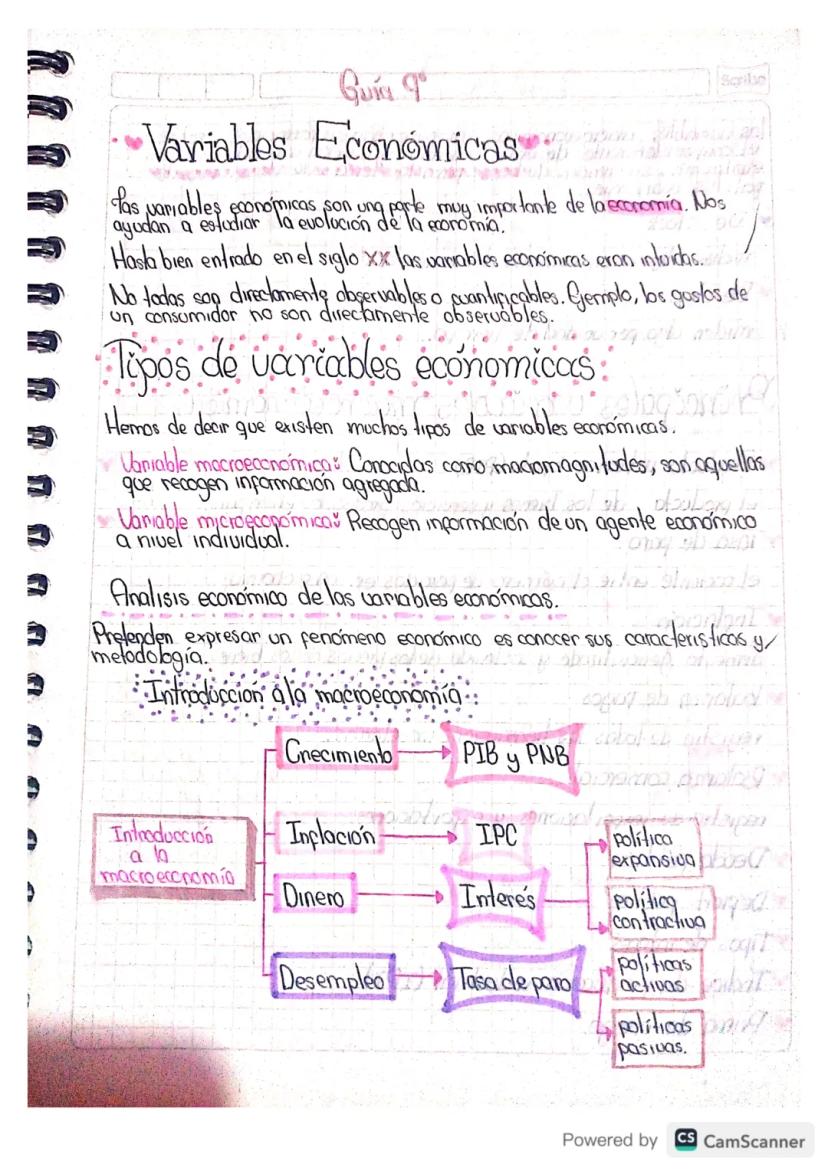 Guía 9°
Scribe
Variables Económicas
Las variables económicas son una parte muy importante de la economía. Nos
ayudan a estudiar la evolución de la economía.
Hasta bien entrado en el siglo XX las variables económicas eran intuidas.
No todas son directamente observables o cuantificables. Ejemplo, los gustos de
un consumidor no son directamente observables.
Tipos de variables económicas:
Hemos de decir que existen muchos tipos de variables económicas.
Variable macroeconómica: Conocidas como macromagnitudes, son aquellas
que recogen información agregada.
Variable microeconómica: Recogen información de un agente económico
a nivel individual.
Analisis económico de las variables económicas.
Pretenden expresar un fenómeno económico es conocer sus caracteristicas y
metodología.
Introducción a la macroeconomía
Crecimiento
PIB y PNB
Introducción
a la
macroeconomía
Inflación
IPC
Dinero
Interés
política
expansiva
política
contractiva
Desempleo
Tasa de paro
políticas
activas
políticas
pasivas.
Powered by CS CamScanner